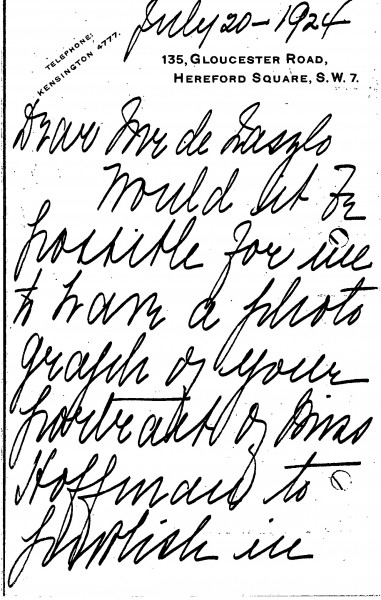 July 20 - 1924
TELEPHONE:
KENSINGTON 4777.
135, GLOUCESTER ROAD,
HEREFORD SQUARE, S.W. 7.
Dear Mr de Laszlo
Would it be
possible for me
to have a photo
graph of your
portrait of Miss
Hoffman to
publish in